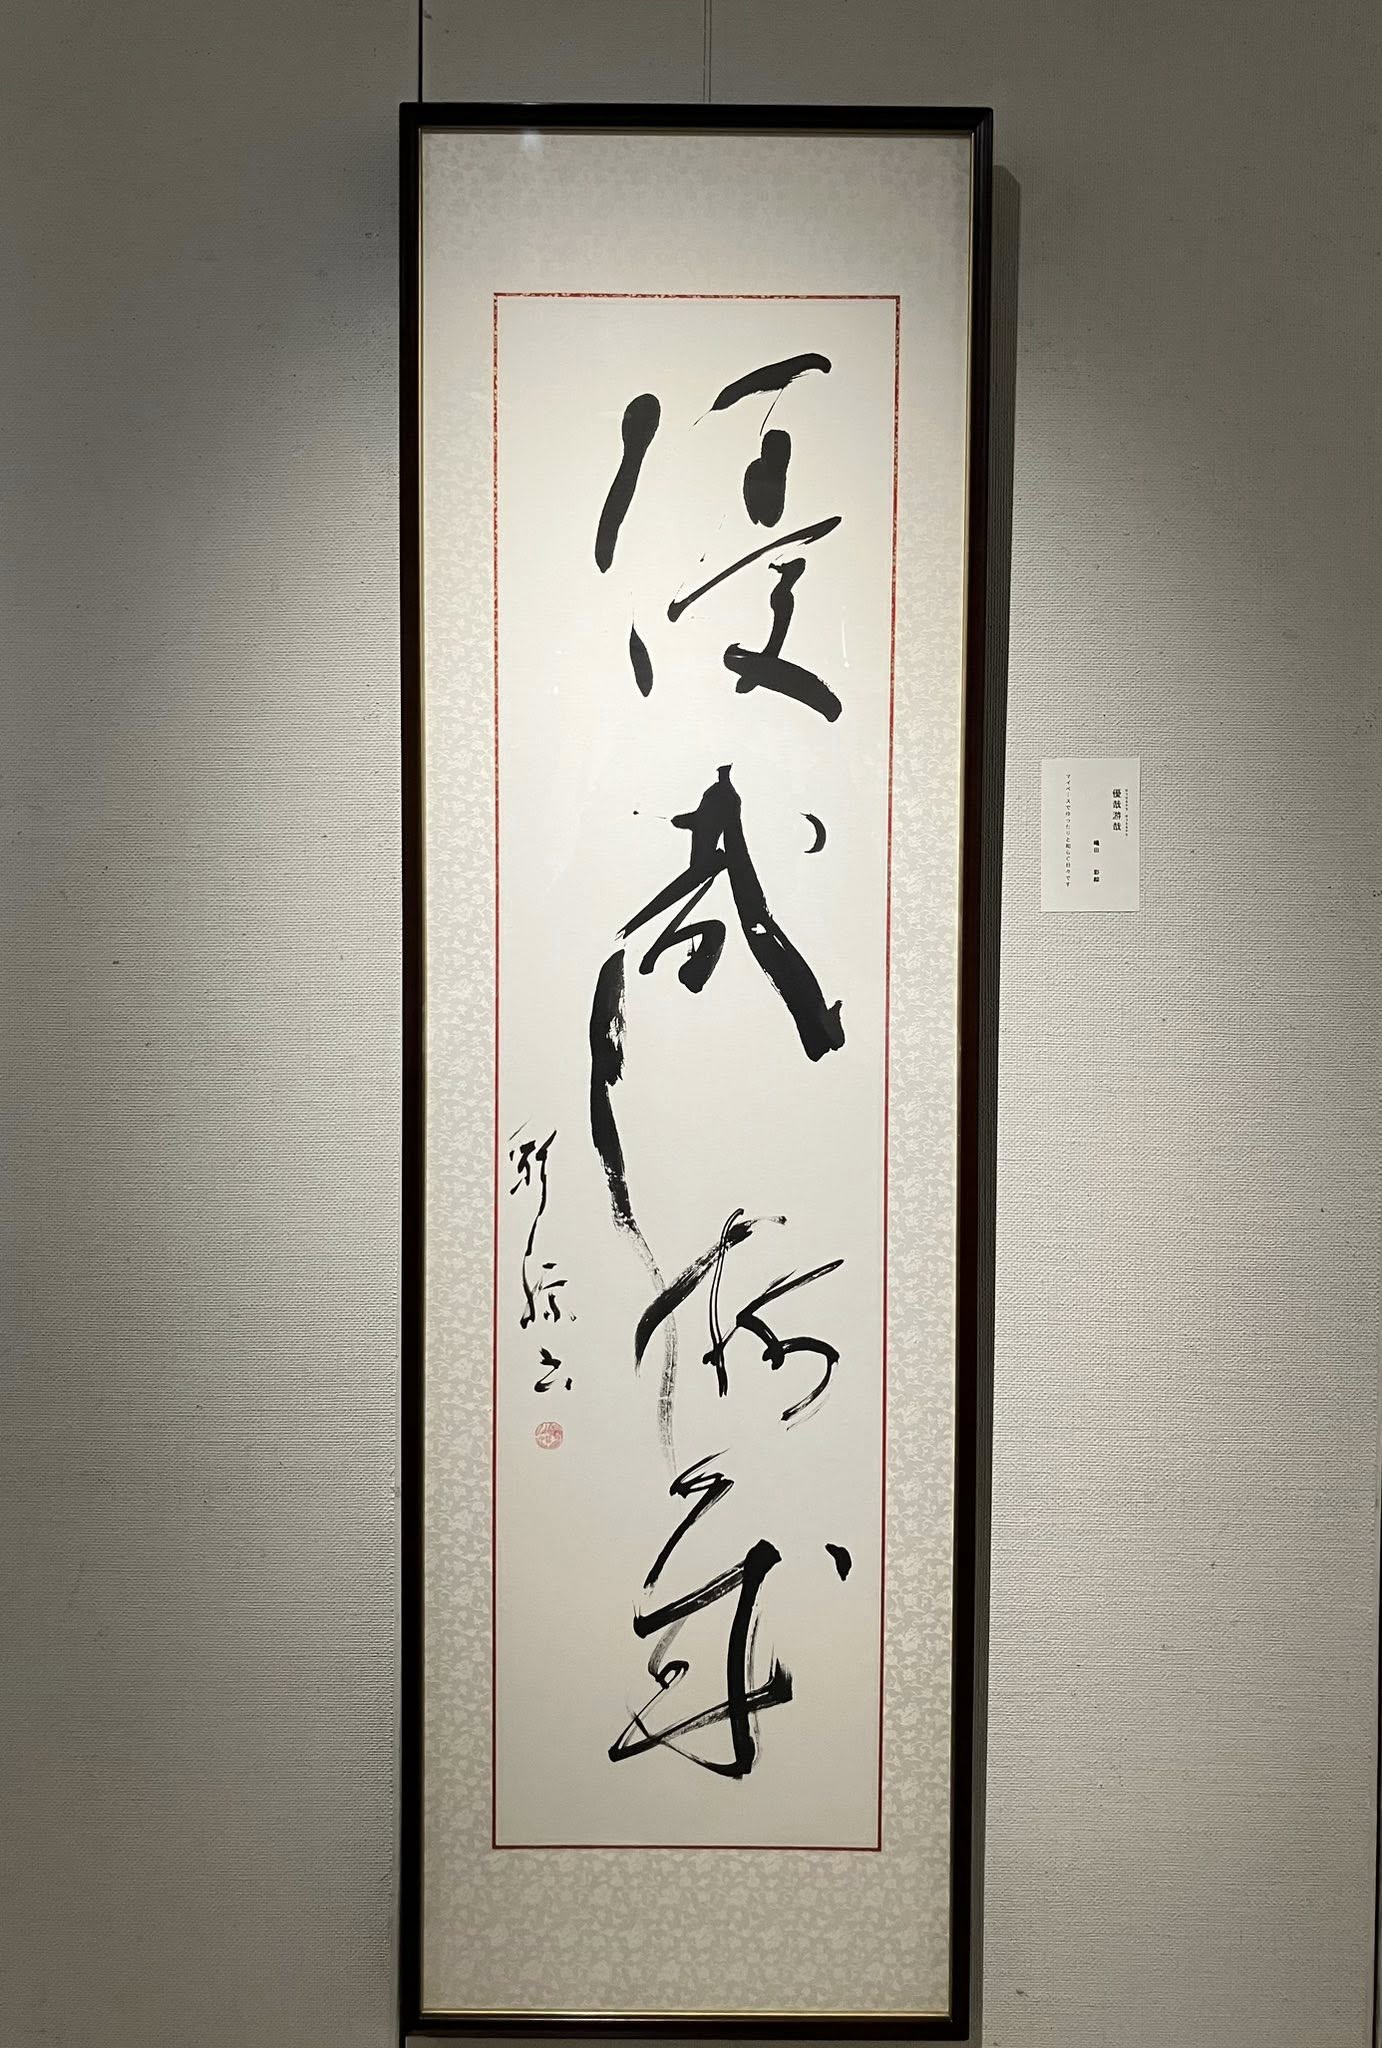 優哉游哉
彩綜書
優哉游哉
嶋田 彩綜
マイペースでゆったりと和らぐ日々です